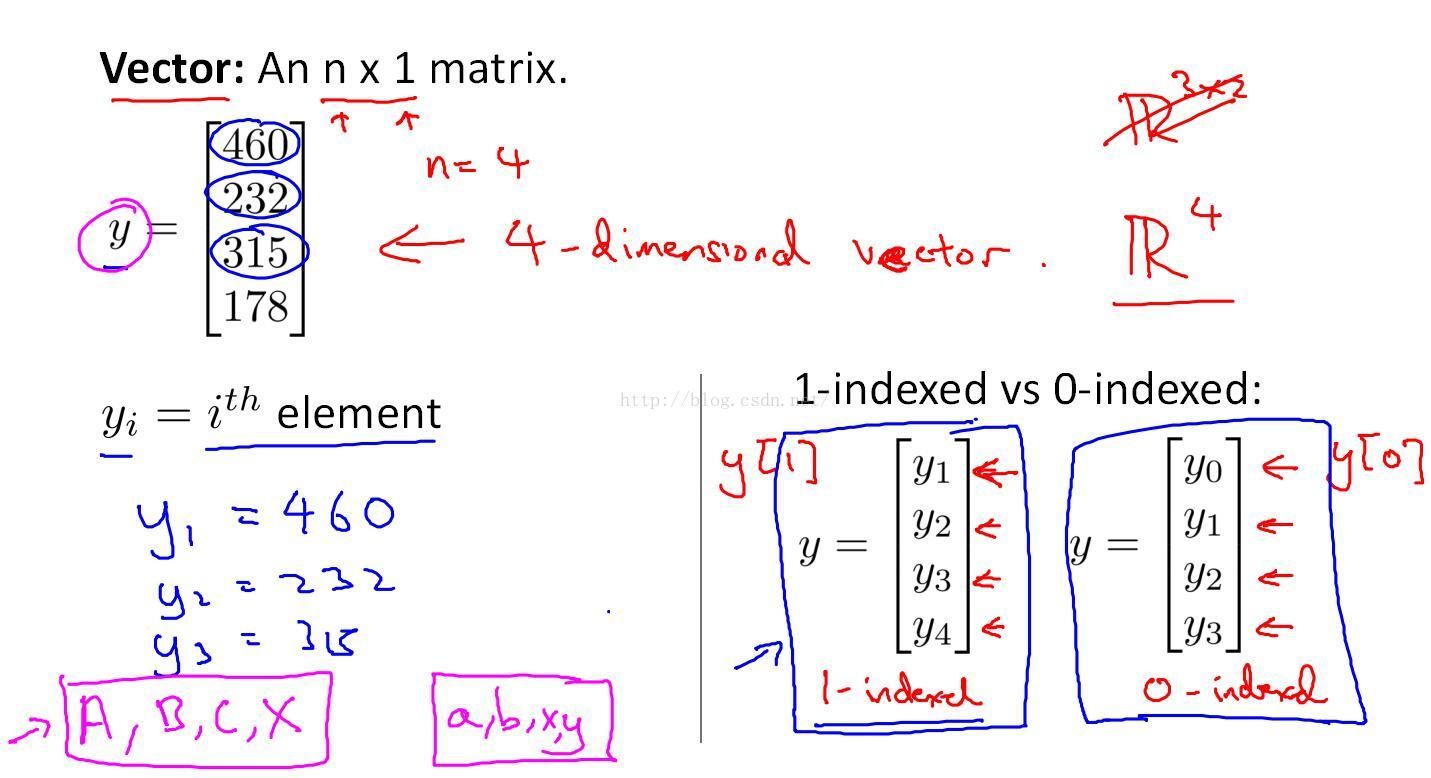 Vector: An n x 1 matrix.
ℝ^{3×2}
n = 4
y = [460 232 315 178]
← 4-dimensional vector.
ℝ^4
y_i = i^{th} element
y_1 = 460
y_2 = 232
y_3 = 315
A, B, C, X
a, b, x, y
http://blog.csdn.net/
1-indexed vs 0-indexed:
y[1]
y = [y_1 y_2 y_3 y_4]
1-indexed
y[0]
y = [y_0 y_1 y_2 y_3]
0-indexed